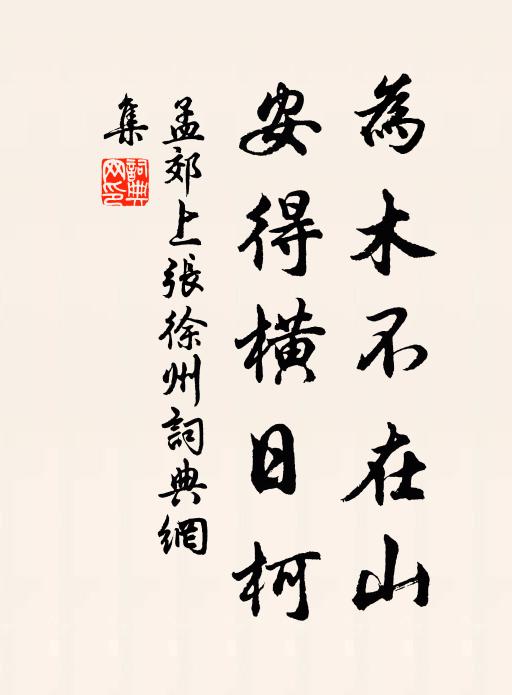 為木不在山
安得橫日柯
孟郊上張徐州詞典網
集
詞典
网印